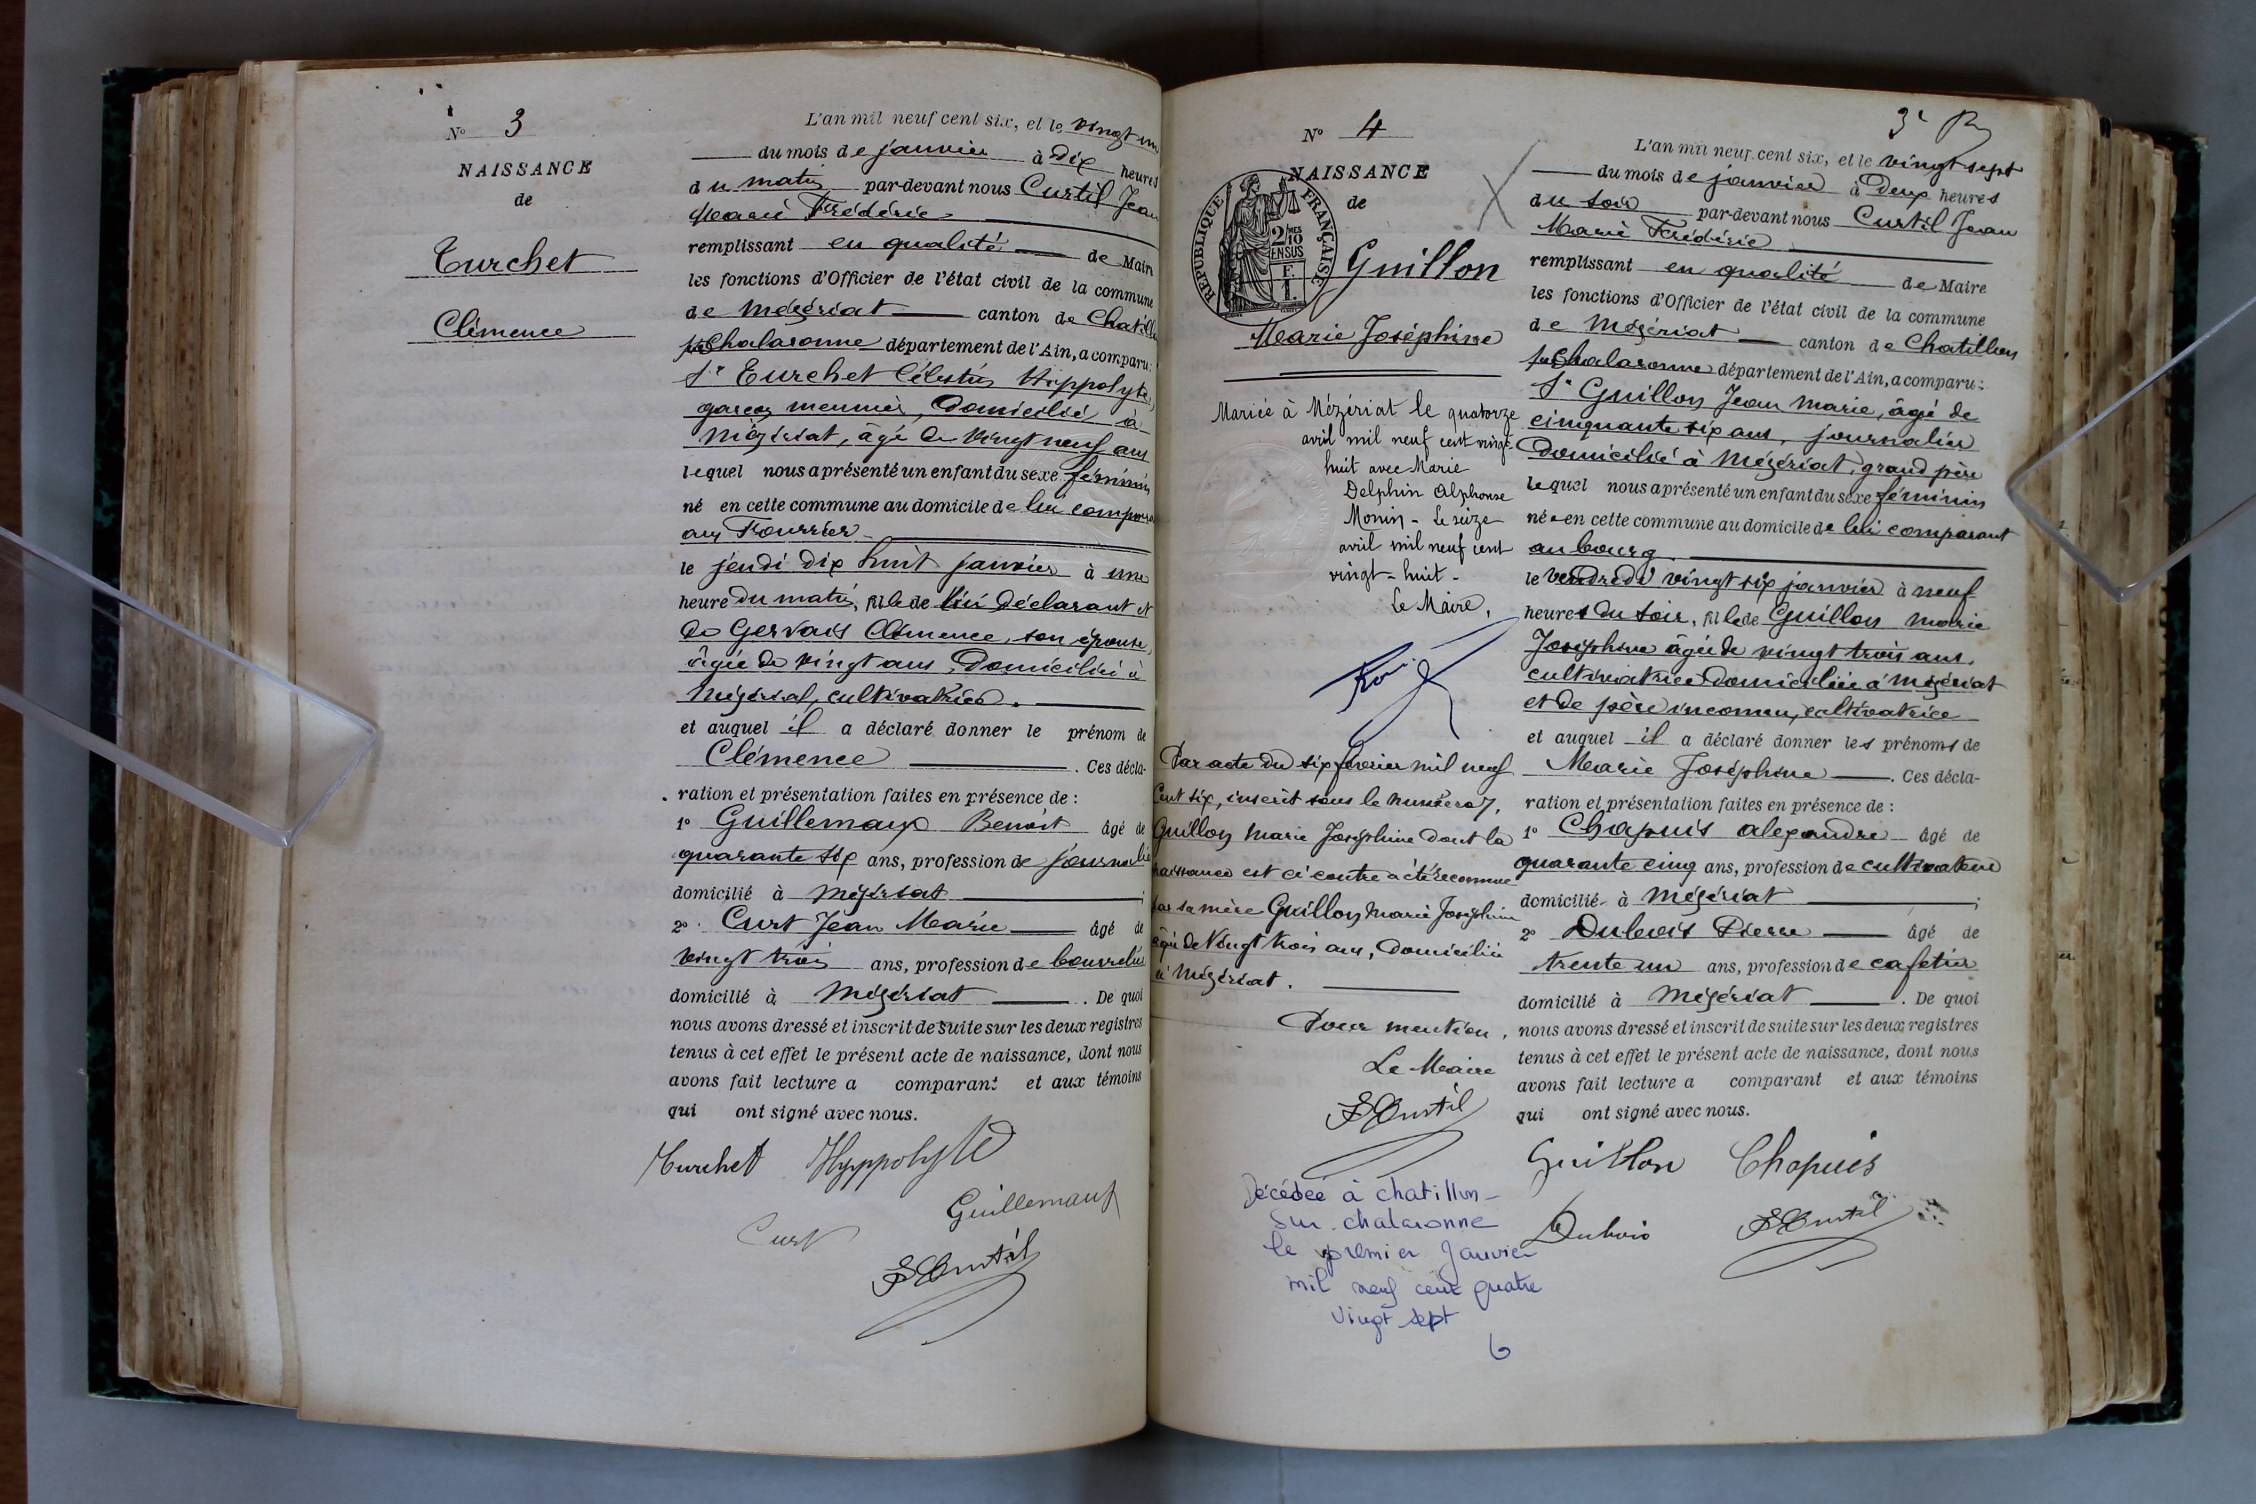 N° 3
NAISSANCE
de
Turchet
Clémence
L'an mil neuf cent six, et le vingt un
du mois de janvier à dix heures
du matin par-devant nous Curtil Jean
Marie Frédéric
remplissant en qualité de Maire
les fonctions d'Officier de l'état civil de la commune
de Mézériat canton de Chatillon
s/Chalaronne département de l'Ain, a comparu :
Sr Turchet Célestin Hippolyte,
garçon meunier, domicilié à
Mézériat, âgé de vingt neuf ans
lequel nous a présenté un enfant du sexe féminin
né en cette commune au domicile de lui comparant
au Fourrier
le jeudi dix huit janvier à une
heure du matin, fille de lui déclarant et
de Gervais Clémence, son épouse,
âgée de vingt ans, domiciliée à
Mézériat, cultivatrice.
et auquel il a déclaré donner le prénom de
Clémence . Ces décla-
ration et présentation faites en présence de :
1° Guillemaux Benoit âgé de
quarante six ans, profession de journalier
domicilié à Mézériat ;
2° Curt Jean Marie âgé de
vingt trois ans, profession de bourrelier
domicilié à Mézériat . De quoi
nous avons dressé et inscrit de suite sur les deux registres
tenus à cet effet le présent acte de naissance, dont nous
avons fait lecture a comparant et aux témoins
qui ont signé avec nous.
Turchet Hyppolyte
Guillemaux
Curt
F Curtil
N° 4
NAISSANCE
de
RÉPUBLIQUE FRANÇAISE
2/10 EN SUS
F. 1.
Guillon
Marie Joséphine
Mariée à Mézériat le quatorze
avril mil neuf cent vingt-
huit avec Marie
Delphin Alphonse
Monin - Le seize
avril mil neuf cent
vingt-huit -
Le Maire,
Par acte du six février mil neuf
cent six, inscrit sous le numéro 7,
Guillon Marie Joséphine dont la
naissance est ci contre a été reconnue
par sa mère Guillon Marie Joséphine
âgée de vingt trois ans, domiciliée
à Mézériat.
Pour mention,
Le Maire
F Curtil
Décédée à chatillon-
sur-chalaronne
le premier Janvier
mil neuf cent quatre
vingt sept
L'an mil neuf cent six, et le vingt sept
du mois de janvier à deux heures
du soir par-devant nous Curtil Jean
Marie Frédéric
remplissant en qualité de Maire
les fonctions d'Officier de l'état civil de la commune
de Mézériat canton de Chatillon
s/Chalaronne département de l'Ain, a comparu :
Sr Guillon Jean Marie, âgé de
cinquante six ans, journalier
domicilié à Mézériat, grand père
lequel nous a présenté un enfant du sexe féminin
née en cette commune au domicile de lui comparant
au bourg
le vendredi vingt six janvier à neuf
heures du soir, fille de Guillon Marie
Joséphine âgée de vingt trois ans,
cultivatrice domiciliée à Mézériat
et de père inconnu, cultivatrice
et auquel il a déclaré donner les prénoms de
Marie Joséphine . Ces décla-
ration et présentation faites en présence de :
1° Chapuis Alexandre âgé de
quarante cinq ans, profession de cultivateur
domicilié à Mézériat ;
2° Dubois Pierre âgé de
trente un ans, profession de cafetier
domicilié à Mézériat . De quoi
nous avons dressé et inscrit de suite sur les deux registres
tenus à cet effet le présent acte de naissance, dont nous
avons fait lecture a comparant et aux témoins
qui ont signé avec nous.
Guillon Chapuis
Dubois F Curtil